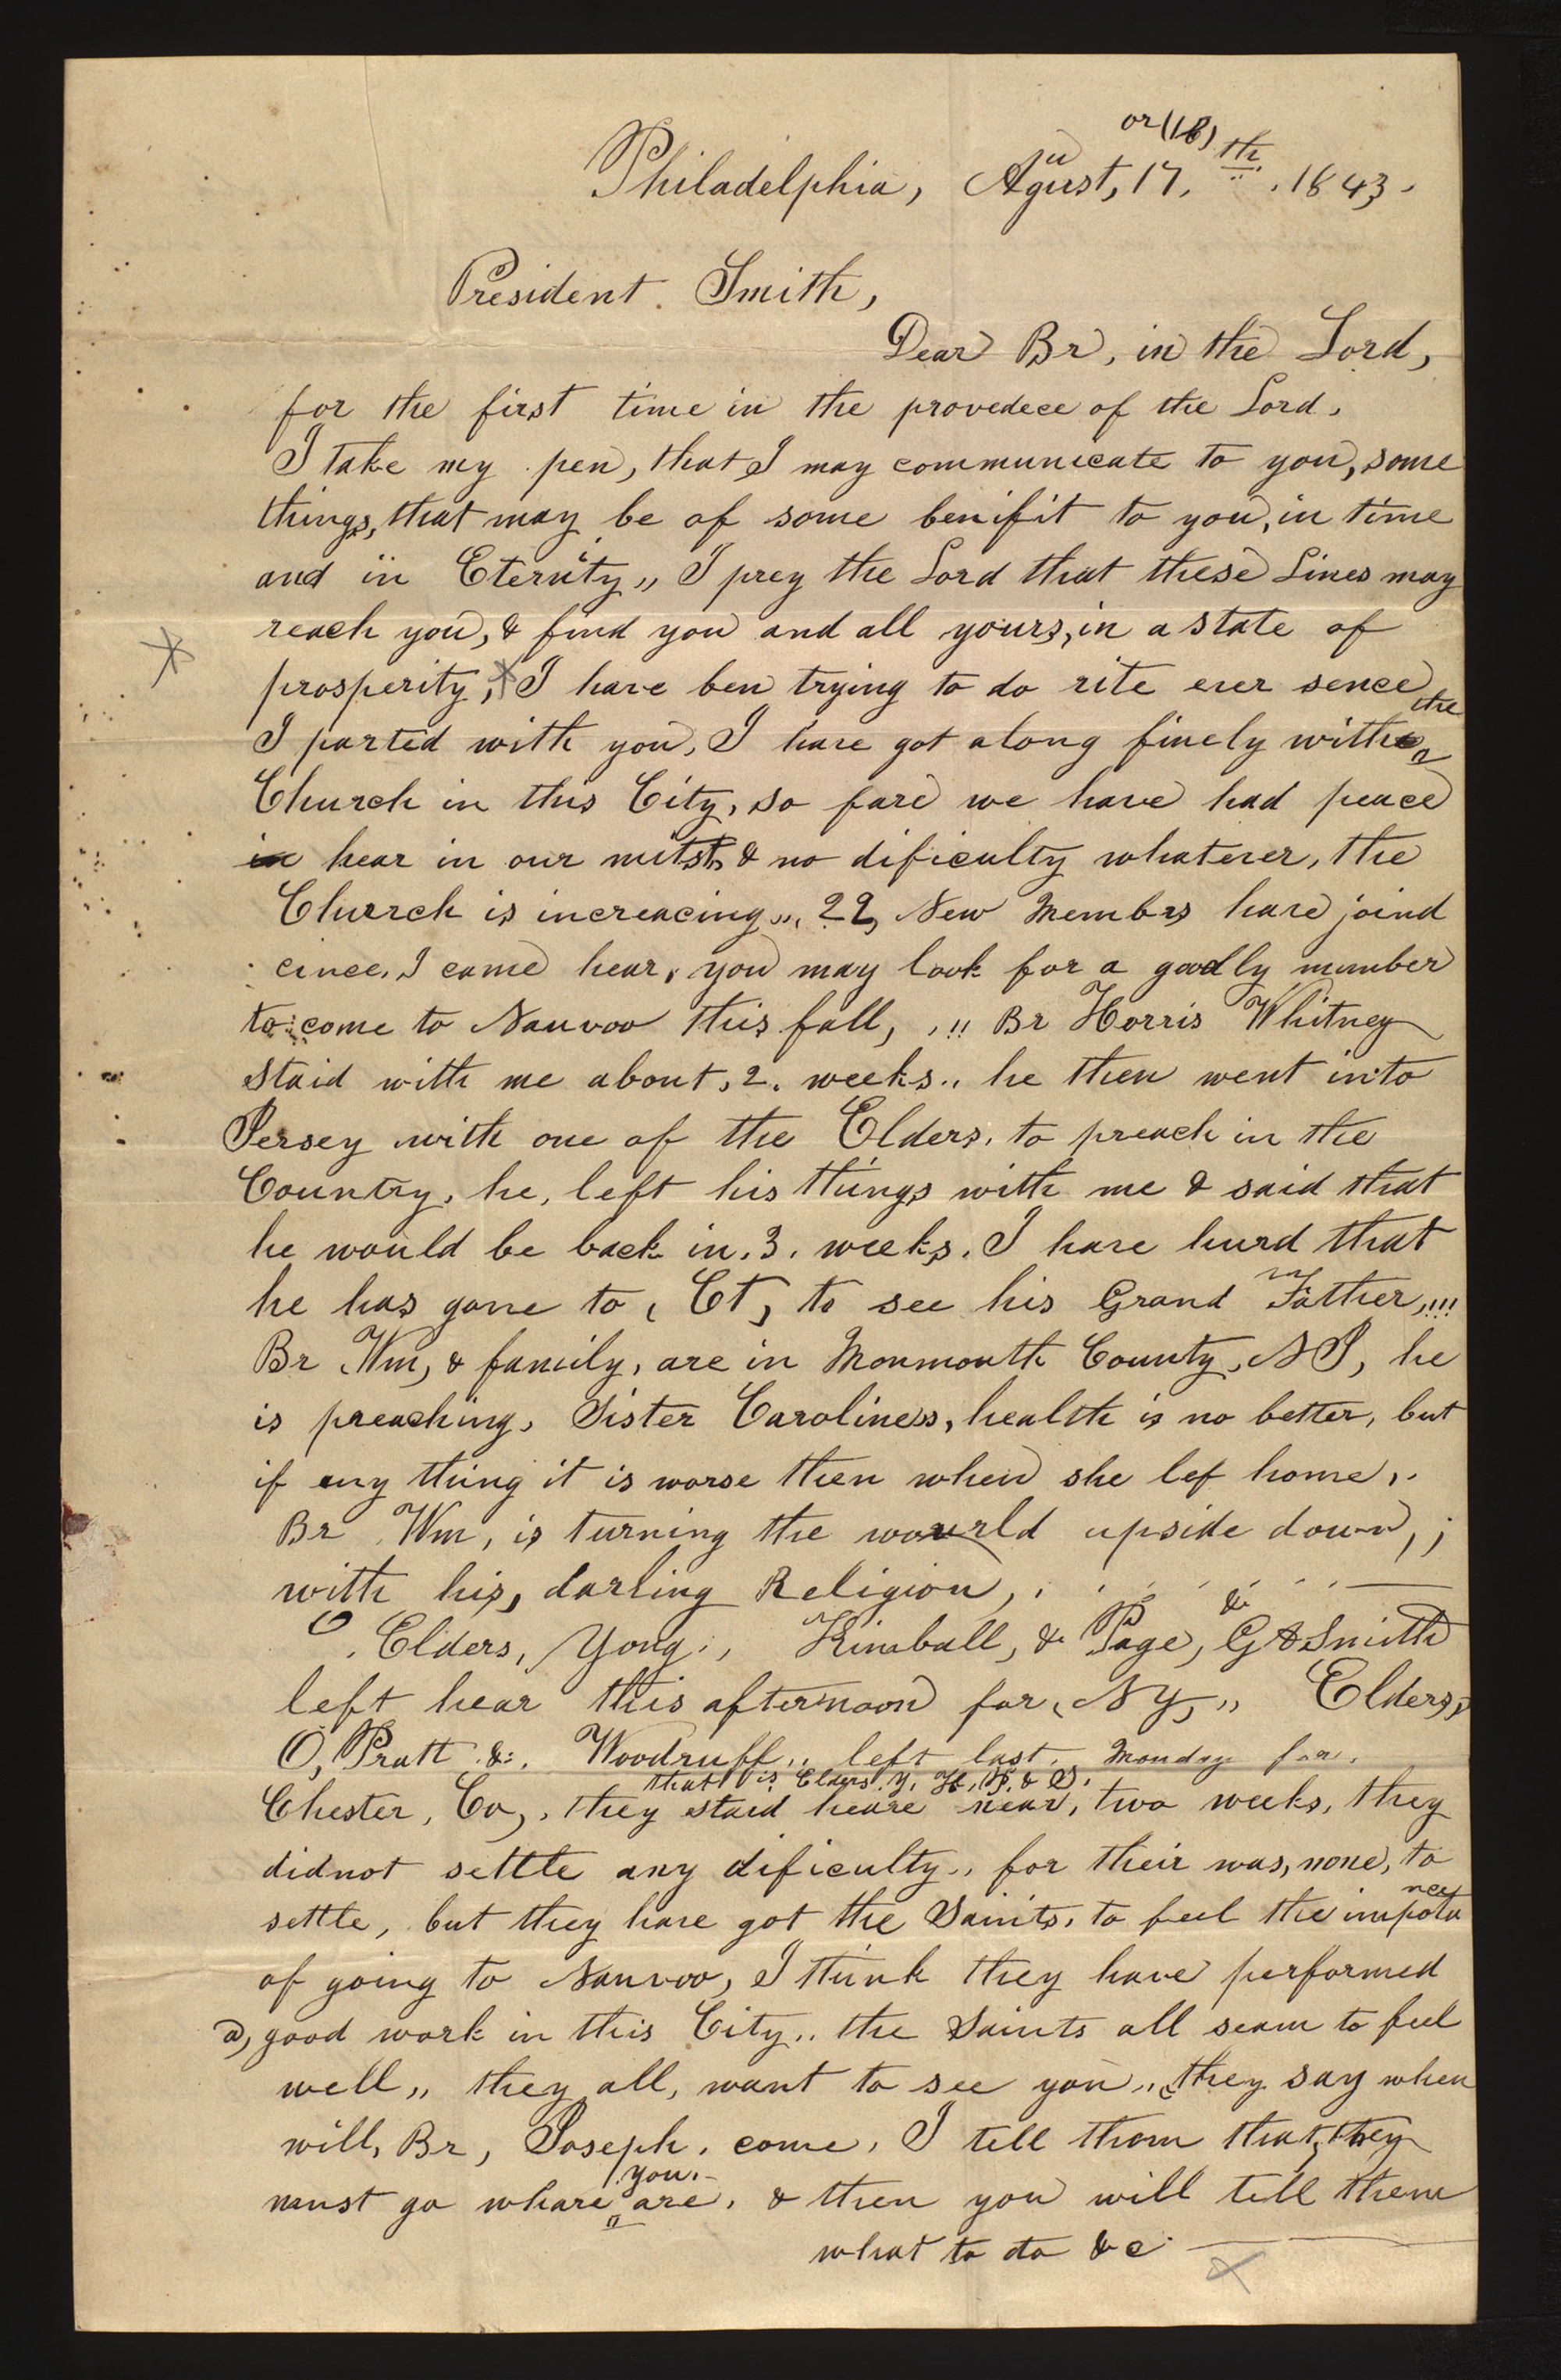 or (18)
Philadelphia, Agust, 17. th. 1843.
u
President. Smith,
Dear Br, in the Lord,
for the first time in the provedece of the Lord,
I take my pen, that I may communicate to you, some
things, that may be of some benifit to you, in time
and in Eternity,, I prey the Lord that these Lines may
reach you, & find you and all yours, in a state of
* prosperity,* I have ben trying to do rite ever sence
the
I parted with you, I have got along finely with
Church in this City, so fare we have had peace
in hear in our mitst, & no dificulty whatever, the
Church is increacing,, 22, New Membrs have joind
cince, I came hear, you may look for a goodly number
to come to Nauvoo this fall, ,!! Br Horris Whitney
staid with me about, 2. weeks., he then went into
Jersey with one of the Elders, to preach in the
Country, he, left his things with me & said that
he would be back in. 3. weeks. I have hurd that
he has gone to, Ct, to see his Grand Father,!!!
Br Wm, & family, are in Monmouth County, N J, he
is preaching, Sister Carolines, health is no better, but
if eny thing it is worse then when she lef home,.
Br Wm, is turning the wourld upside down, ;
with his, darling Religion, .
&
Elders, Yong., Kimball, & Page, G A Smith
left hear this afternoon for, N Y,,, Elders,
O, Pratt &. Woodruff,, left last, Monday for.
that is Elders. Y. H. P. & S.
Chester, Co,, they staid heare near, two weeks, they
didnot settle any dificulty., for their was, none, to
settle, but they have got the Saints, to feel the impota
nce
of going to Nauvoo, I think they have performed
a, good work in this City,. the Saints all seam to feel
well,, they all, want to see you,, they say when
will, Br, Joseph. come, I tell them that, they
you.
must go whare are, & then you will tell them
what to do &c